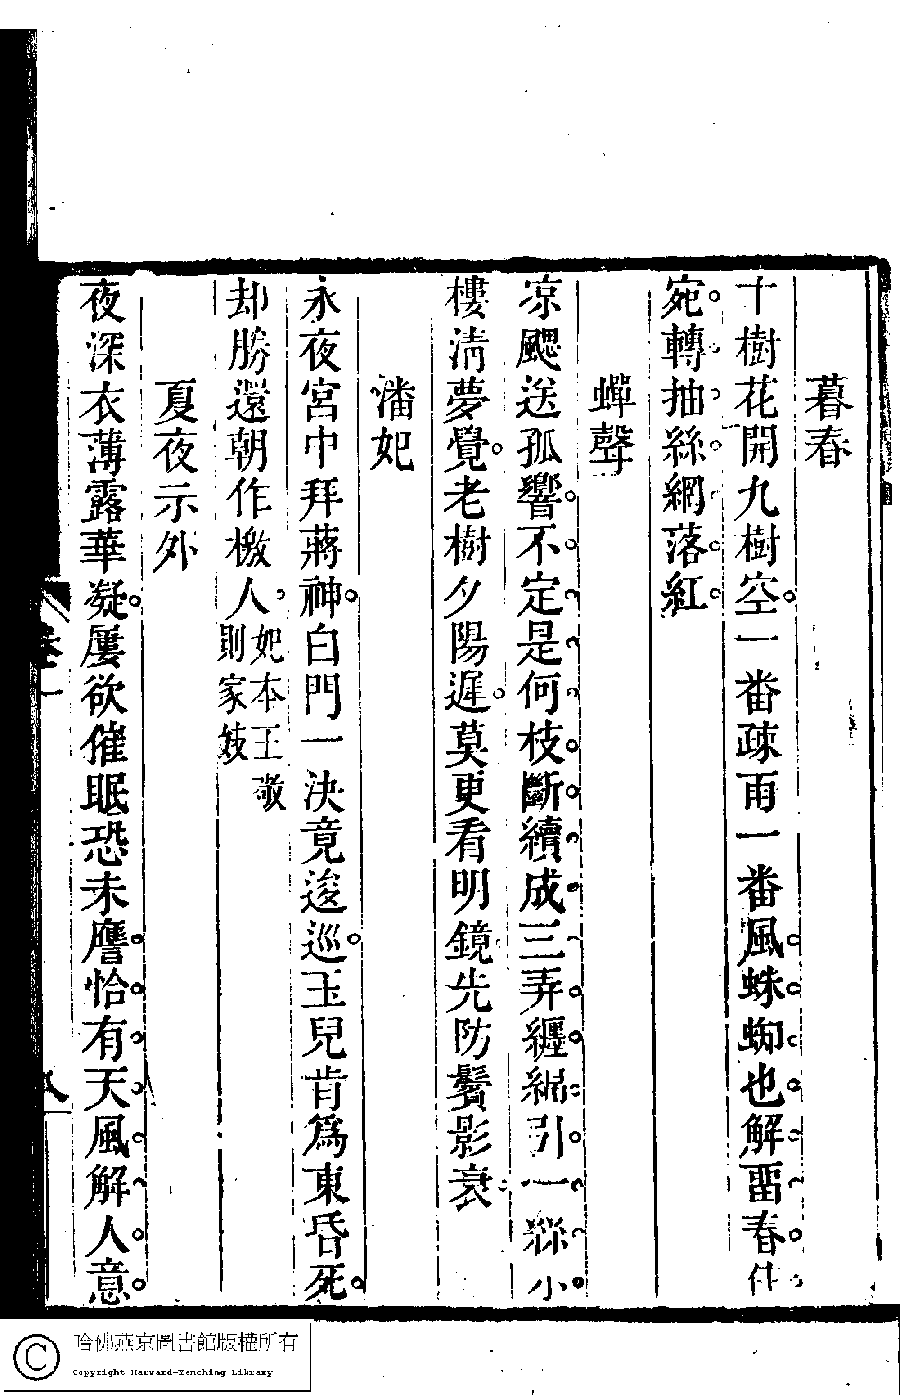 暮春
十樹花開九樹空一番疎雨一番風蛛蜘也解畱春住
宛轉抽絲網落紅
蟬聲
凉颸送孤響不定是何枝斷續成三弄纒綿引一絲小
樓清夢覺老樹夕陽遲莫更看明鏡先防鬢影衰
潘妃
永夜宮中拜蔣神白門一決竟逡巡玉兒肯爲東昏死
却勝還朝作檄人妃本王敬則家妓
夏夜示外
夜深衣薄露華凝屢欲催眠恐未譍恰有天風解人意
卷一
八
哈佛燕京圖書館版權所有
Copyright Harvard-Yenching Library